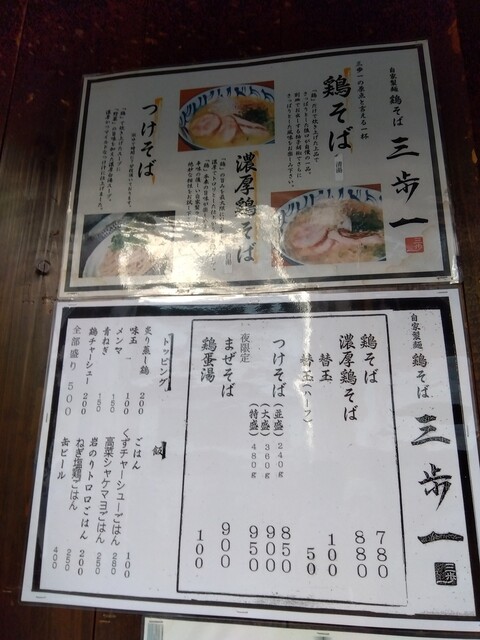 自家製麺 鶏そば 三歩一
三歩一の原点と言える一杯
鶏そば
濃厚鶏そば
つけそば
自家製麺 鶏そば 三歩一
鶏そば 780
濃厚鶏そば 880
替玉 100
替玉(ハーフ) 50
つけそば (並盛) 240g 850
(大盛) 360g 900
(特盛) 480g 950
夜限定
まぜそば 900
鶏蛋湯 100
トッピング
炙り蒸し鶏 200
味玉 100
メンマ 150
青ねぎ 150
鶏チャーシュー 200
全部盛り 500
飯
ごはん 100
くずチャーシューごはん 280
高菜シャケマヨごはん 250
岩のりトロロごはん 200
ねぎ塩鶏ごはん 250
缶ビール 400